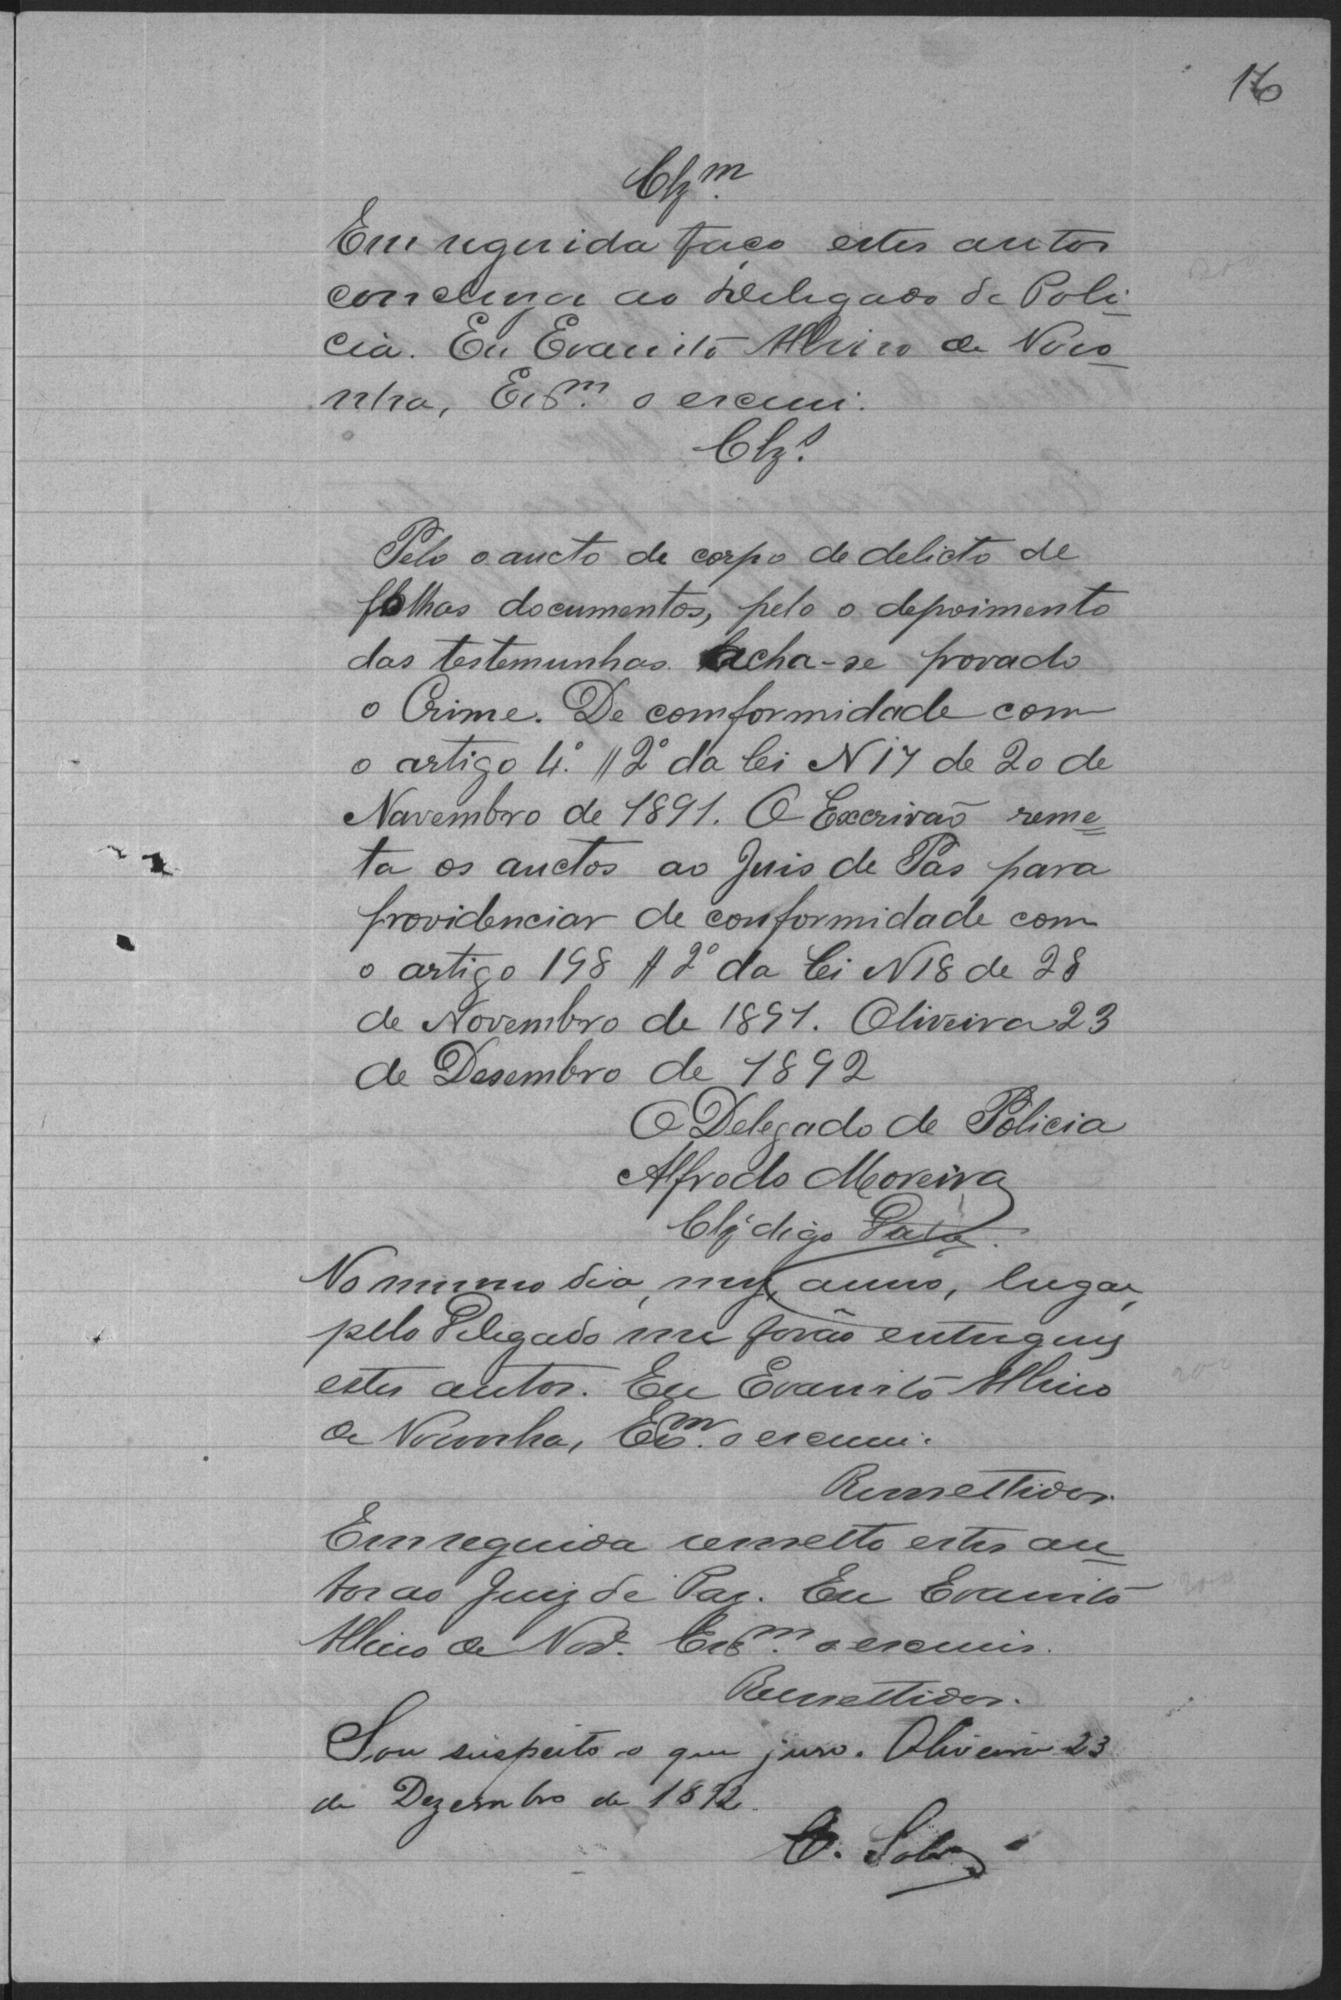 16
Clz.m
Em seguida faço estes autos
conclusos ao Delegado de Poli
cia. Eu Evaristo Albino de Noro
nha, Escm. o escrevi.
Clz.s
Pelo o aucto de corpo de delicto de
folhas documentos, pelo o depoimento
das testemunhas acha-se provado
o Crime. De comformidade com
o artigo 4.º § 2º da lei N 17 de 20 de
Navembro de 1891. O Excrivão reme=
ta os auctos ao Juis de Pás para
providenciar de conformidade com
o artigo 198 § 2º da lei N 18 de 28
de Novembro de 1891. Oliveira 23
de Desembro de 1892
O Delegado de Policia
Alfrodo Moreira
Clz digo Data
No mesmo dia, mez, anno, lugar,
pelo Delegado me forão entregues
estes autos. Eu Evaristo Albino
de Noronha, Escm. o escrevi.
Remettidos.
Em seguida remetto estes au
tos ao Juiz de Paz. Eu Evaristo
Albino de Nor.ª Escm. o escrevi.
Remettidos.
Sou suspeito o que juro. Oliveira 23
de Dezembro de 1892.